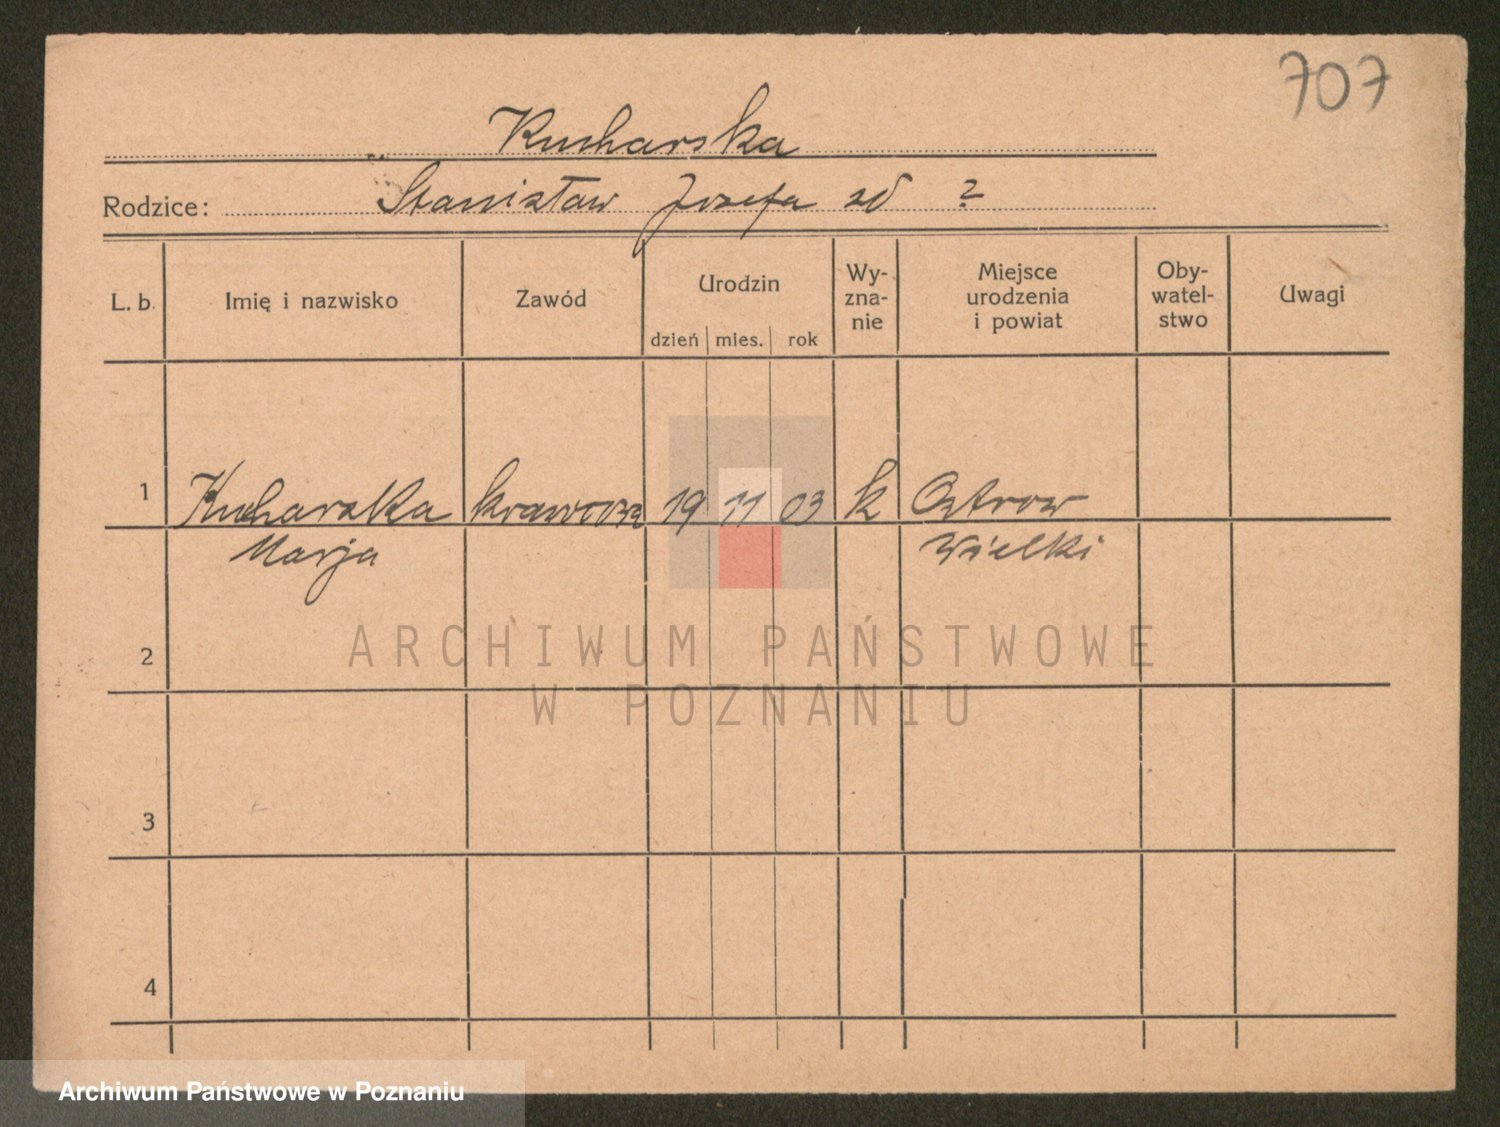 707
Kucharska
Rodzice: Stanisław Józefa zd ?
L. b. Imię i nazwisko Zawód Urodzin Wy- Miejsce Oby- Uwagi
zna- urodzenia watel-
nie i powiat stwo
dzień mies. rok
1 Kucharska krawcowa 19 11 03 k Ostrow
Marja Wielki
2
ARCHIWUM PAŃSTWOWE
W POZNANIU
3
4
Archiwum Państwowe w Poznaniu